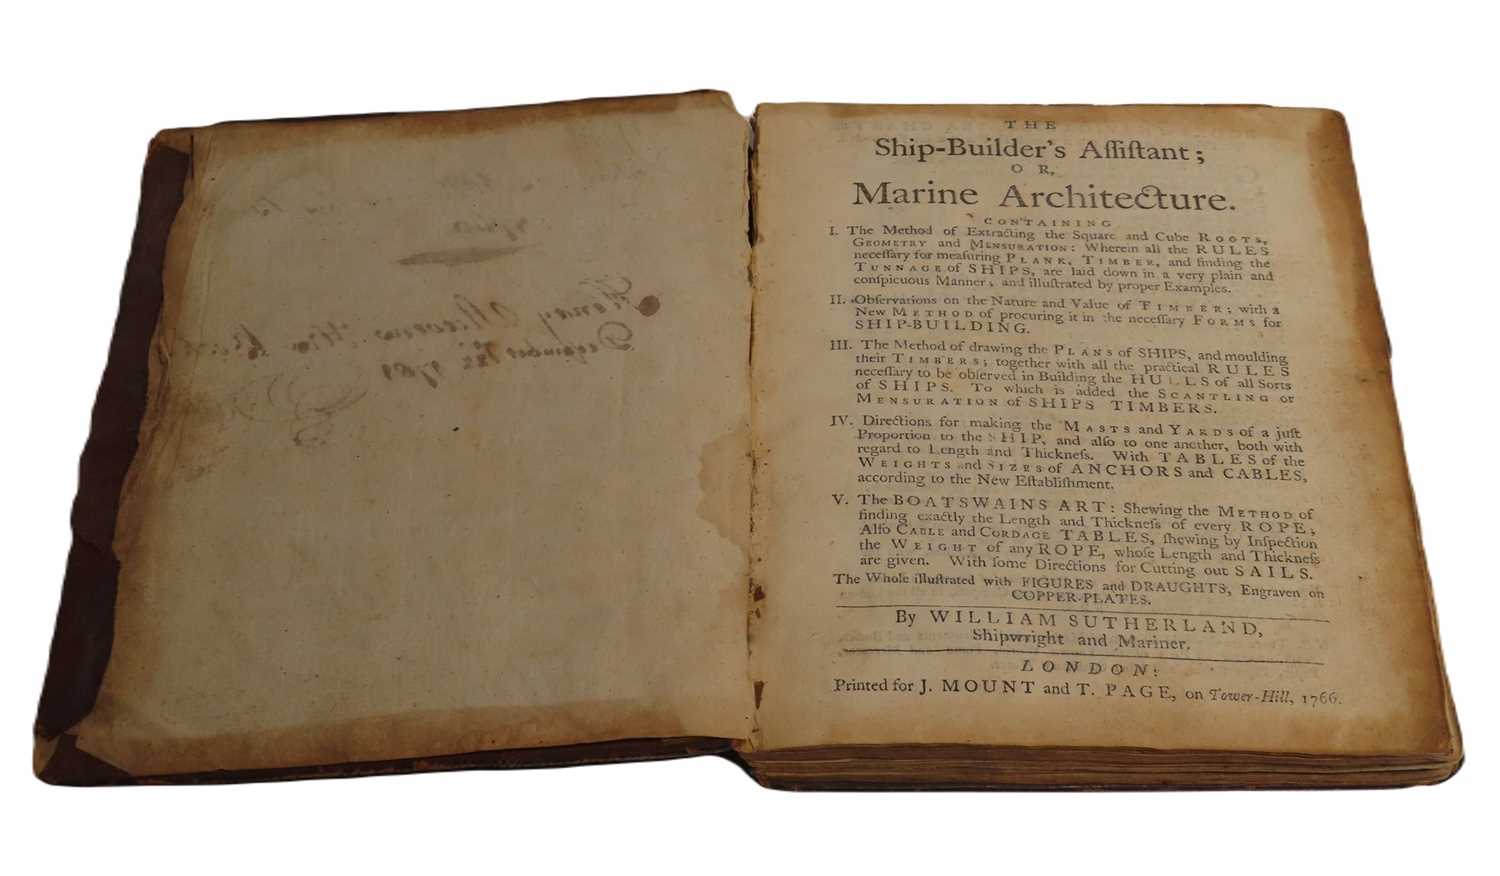 Henry Stevens His Book
December 1st 1781
THE
Ship-Builder's Aſſiſtant;
OR,
Marine Architecture.
CONTAINING
I. The Method of Extracting the Square and Cube ROOTS,
GEOMETRY and MENSURATION: Wherein all the RULES
neceſſary for meaſuring PLANK, TIMBER, and finding the
TUNNAGE of SHIPS, are laid down in a very plain and
conſpicuous Manner; and illuſtrated by proper Examples.
II. Obſervations on the Nature and Value of TIMBER; with a
New METHOD of procuring it in the neceſſary FORMS for
SHIP-BUILDING.
III. The Method of drawing the PLANS of SHIPS, and moulding
their TIMBERS; together with all the practical RULES
neceſſary to be obſerved in Building the HULLS of all Sorts
of SHIPS. To which is added the SCANTLING or
MENSURATION of SHIPS TIMBERS.
IV. Directions for making the MASTS and YARDS of a juſt
Proportion to the SHIP, and alſo to one another, both with
regard to Length and Thickneſs. With TABLES of the
WEIGHTS and SIZES of ANCHORS and CABLES,
according to the New Eſtabliſhment.
V. The BOATSWAINS ART: Shewing the METHOD of
finding exactly the Length and Thickneſs of every ROPE;
Alſo CABLE and CORDAGE TABLES, ſhewing by Inſpection
the WEIGHT of any ROPE, whoſe Length and Thickneſs
are given. With ſome Directions for Cutting out SAILS.
The Whole illuſtrated with FIGURES and DRAUGHTS, Engraven on
COPPER-PLATES.
By WILLIAM SUTHERLAND,
Shipwright and Mariner.
LONDON:
Printed for J. MOUNT and T. PAGE, on Tower-Hill, 1766.